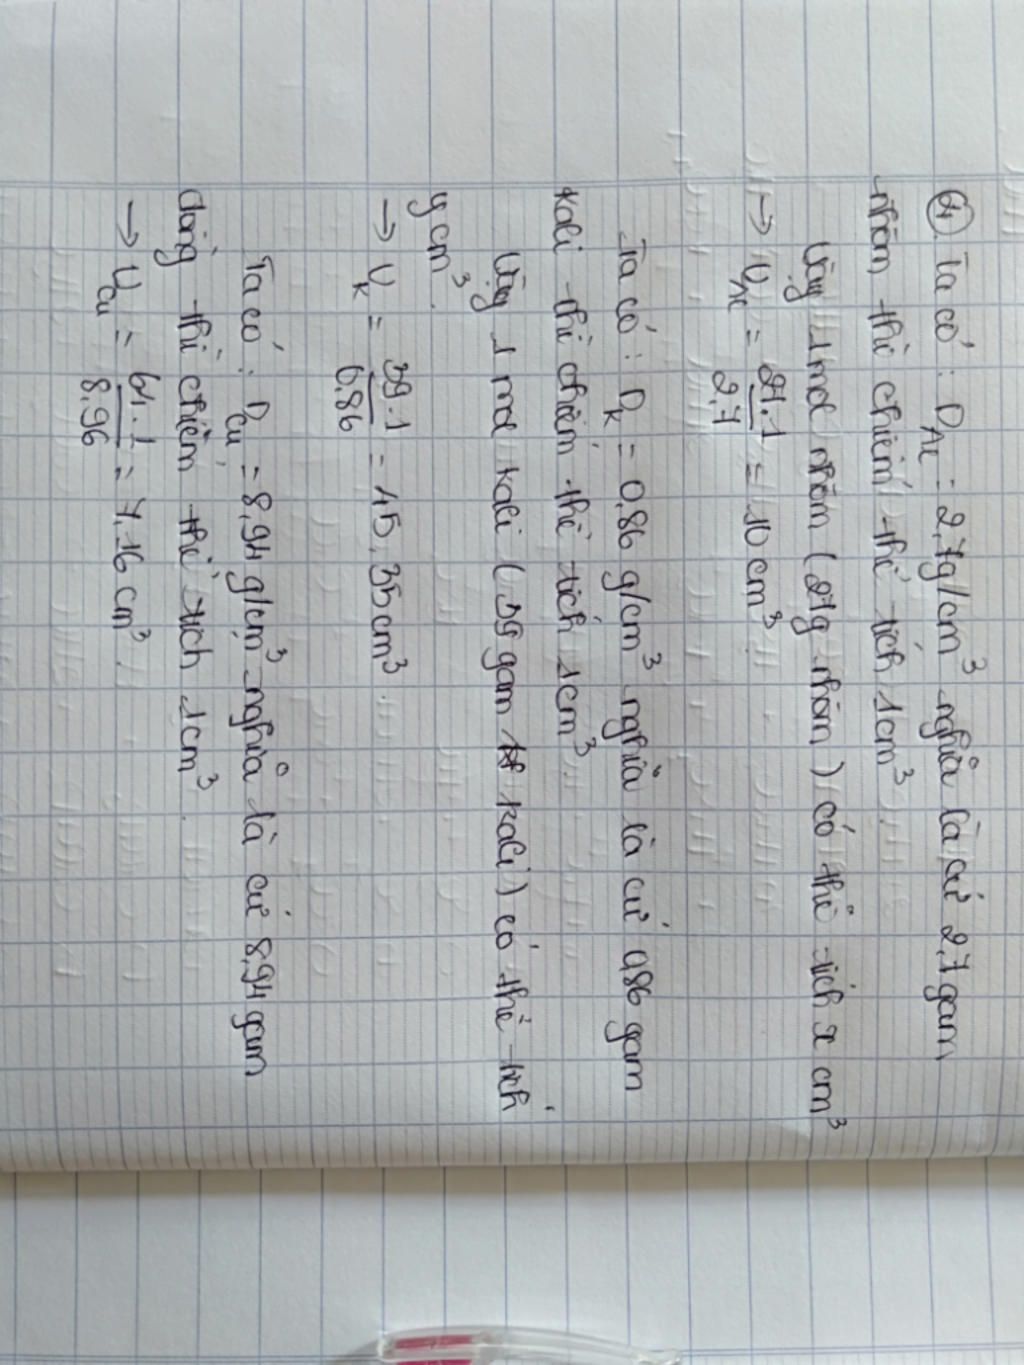 ④. Ta có : D_Al = 2,7g/cm³ nghĩa là cứ 2,7 gam
nhôm thì chiếm thể tích 1cm³.
Vậy 1 mol nhôm (27g nhôm) có thể tích x cm³
→ V_Al = 27.1/2,7 = 10 cm³
Ta có : D_K = 0,86 g/cm³ nghĩa là cứ 0,86 gam
kali thì chiếm thể tích 1cm³
Vậy 1 mol kali (39 gam kali) có thể tích
y cm³.
→ V_K = 39.1/0,86 = 45,35cm³.
Ta có : D_Cu = 8,94 g/cm³ nghĩa là cứ 8,94 gam
đồng thì chiếm thể tích 1cm³.
→ V_Cu = 64.1/8,96 = 7,16 cm³.